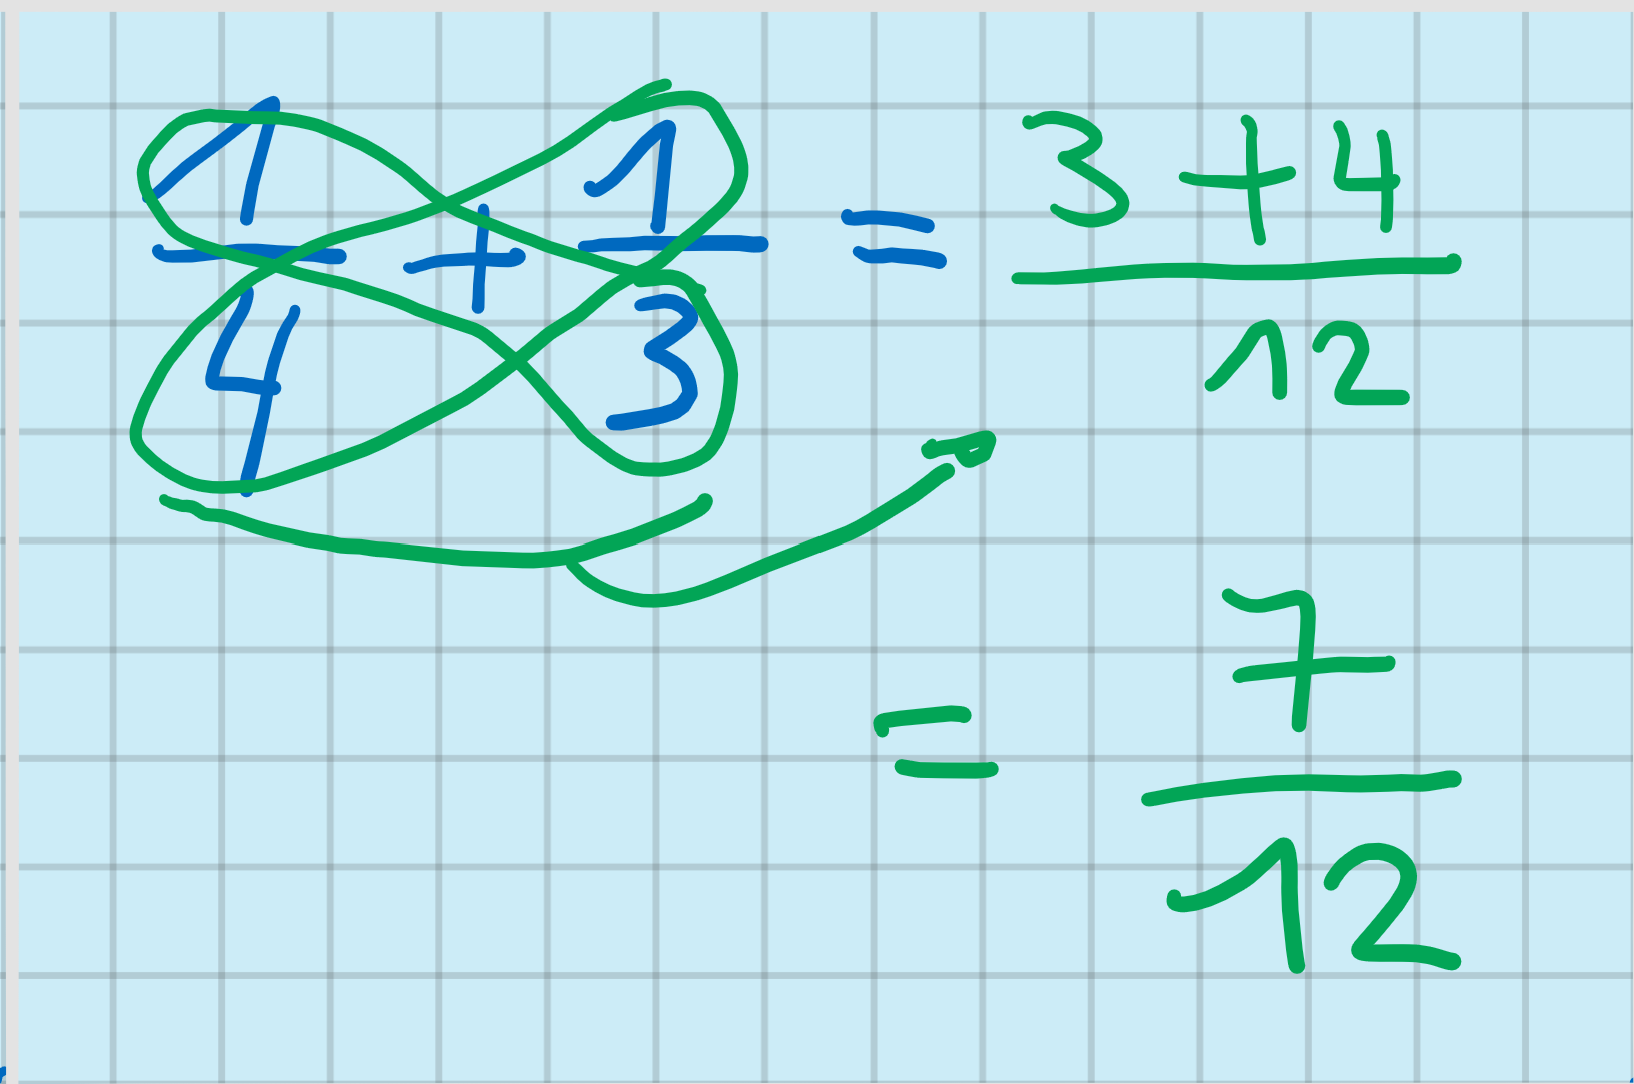 1/4 + 1/3 = (3 + 4)/12
= 7/12